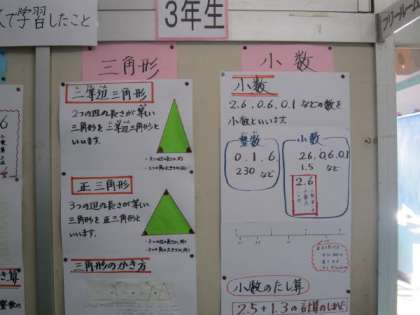 で学習したこと
3年生
フリールーム
三角形
小数
二等辺三角形
2つの辺の長さが等しい
三角形を二等辺三角形と
いいます。
正三角形
3つの辺の長さが等しい
三角形を正三角形と
いいます。
三角形のかき方
小数
2.6, 0.6, 0.1 などの数を
小数といいます。
整数
0, 1, 6,
230 など
小数
2.6, 0.6, 0.1
1.5 など
2.6
小数のたし算
2.5+1.3の計算のしかた